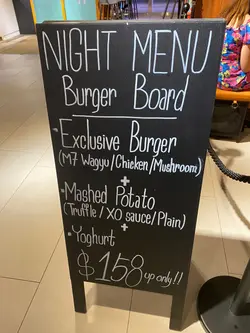 NIGHT MENU
Burger Board
• Exclusive Burger
(M7 Wagyu/Chicken/Mushroom)
+
• Mashed Potato
(Truffle / XO sauce/Plain)
+
• Yoghurt
$158 up only!!